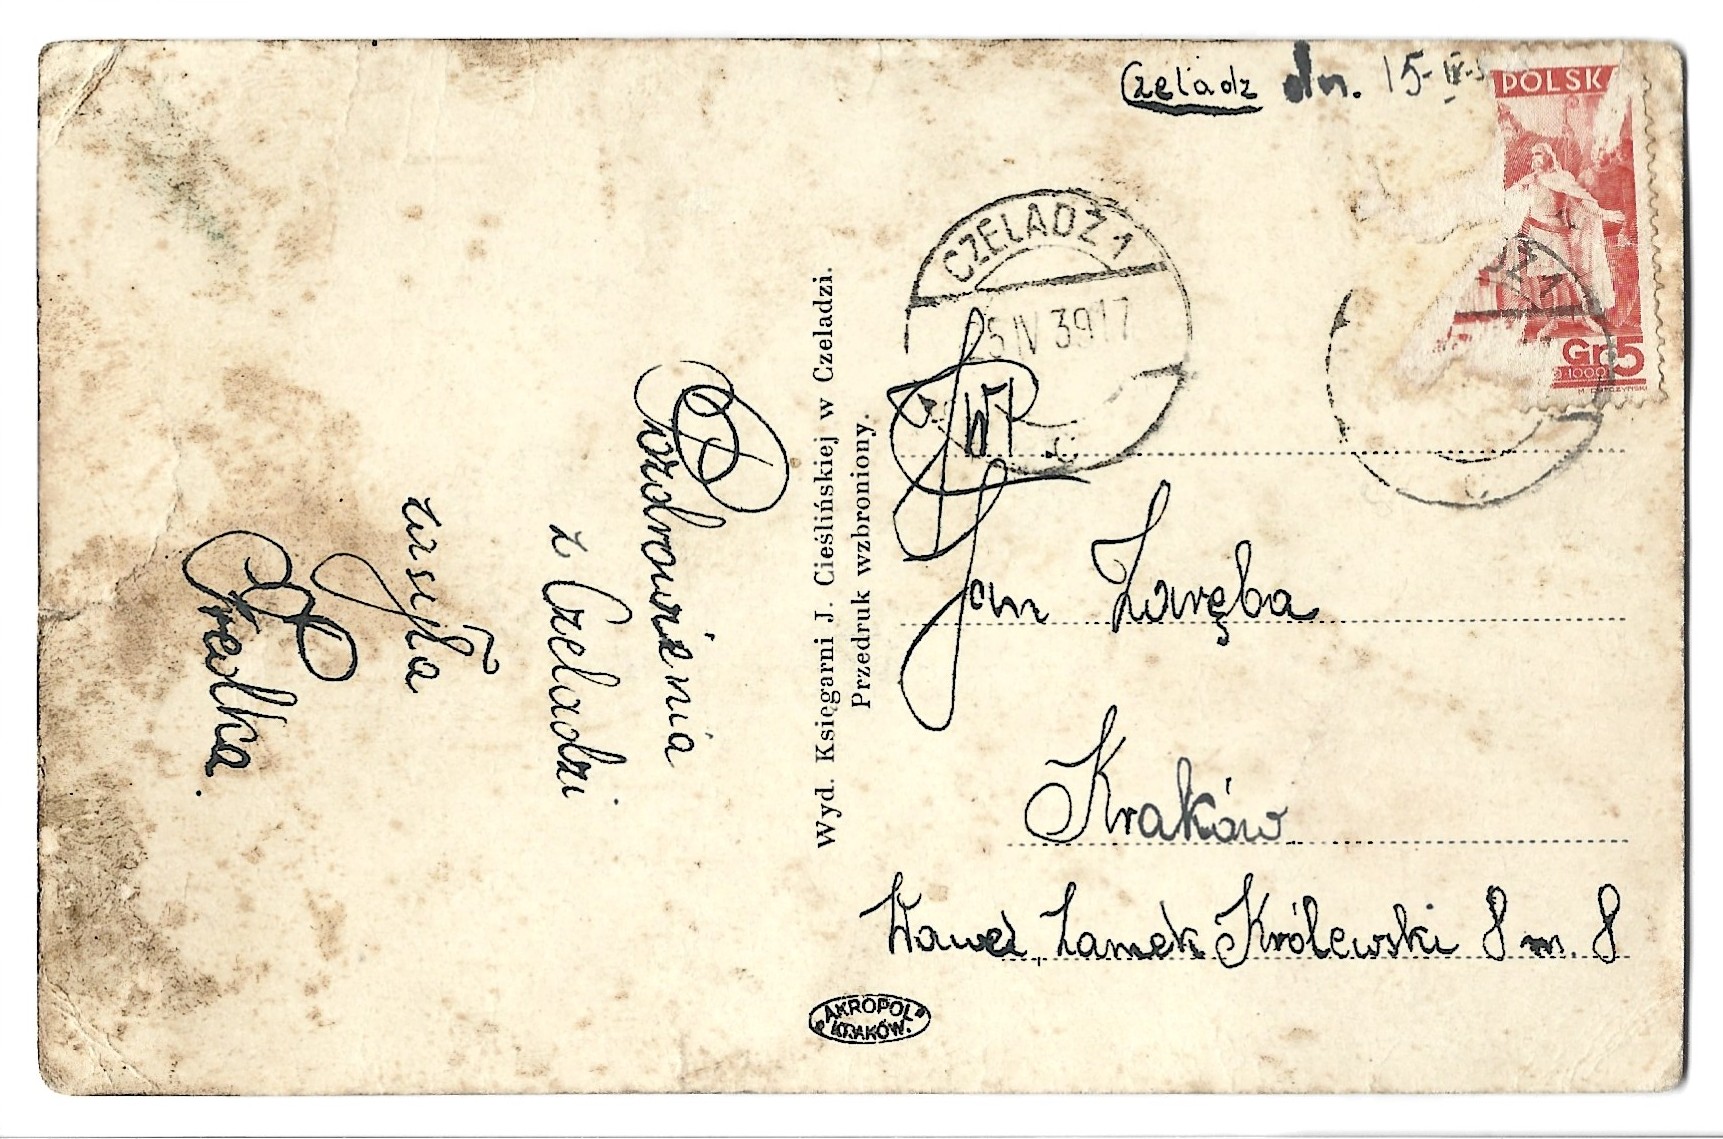 Czeladz dn. 15-IV-3
POLSK
Gr. 5
CZELADŹ 1
15 IV 39 17
c
DŹ 1
c
WP
Jan Zaręba
Kraków
Wawel, Zamek Królewski 8 m. 8
Wyd. Księgarni J. Cieślińskiej w Czeladzi.
Przedruk wzbroniony.
Pozdrowienia
z Czeladzi
zasyła
Frelka.
„AKROPOL”
KRAKÓW.